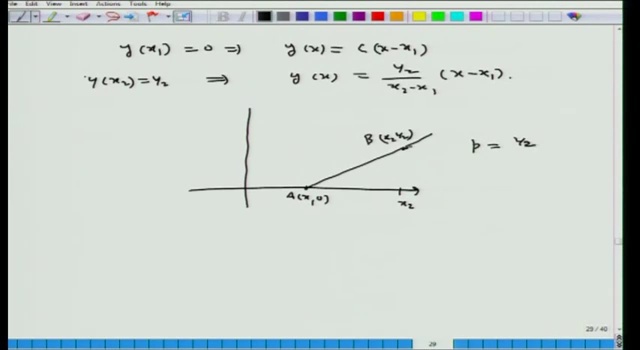 File Edit View Insert Actions Tools Help
y(x₁) = 0 ⇒ y(x) = C(x-x₁)
y(x₂) = y₂ ⇒ y(x) = y₂/(x₂-x₁) (x-x₁).
B(x₂ y₂)
p = y₂
A(x₁ 0)
x₂
29 / 40
29